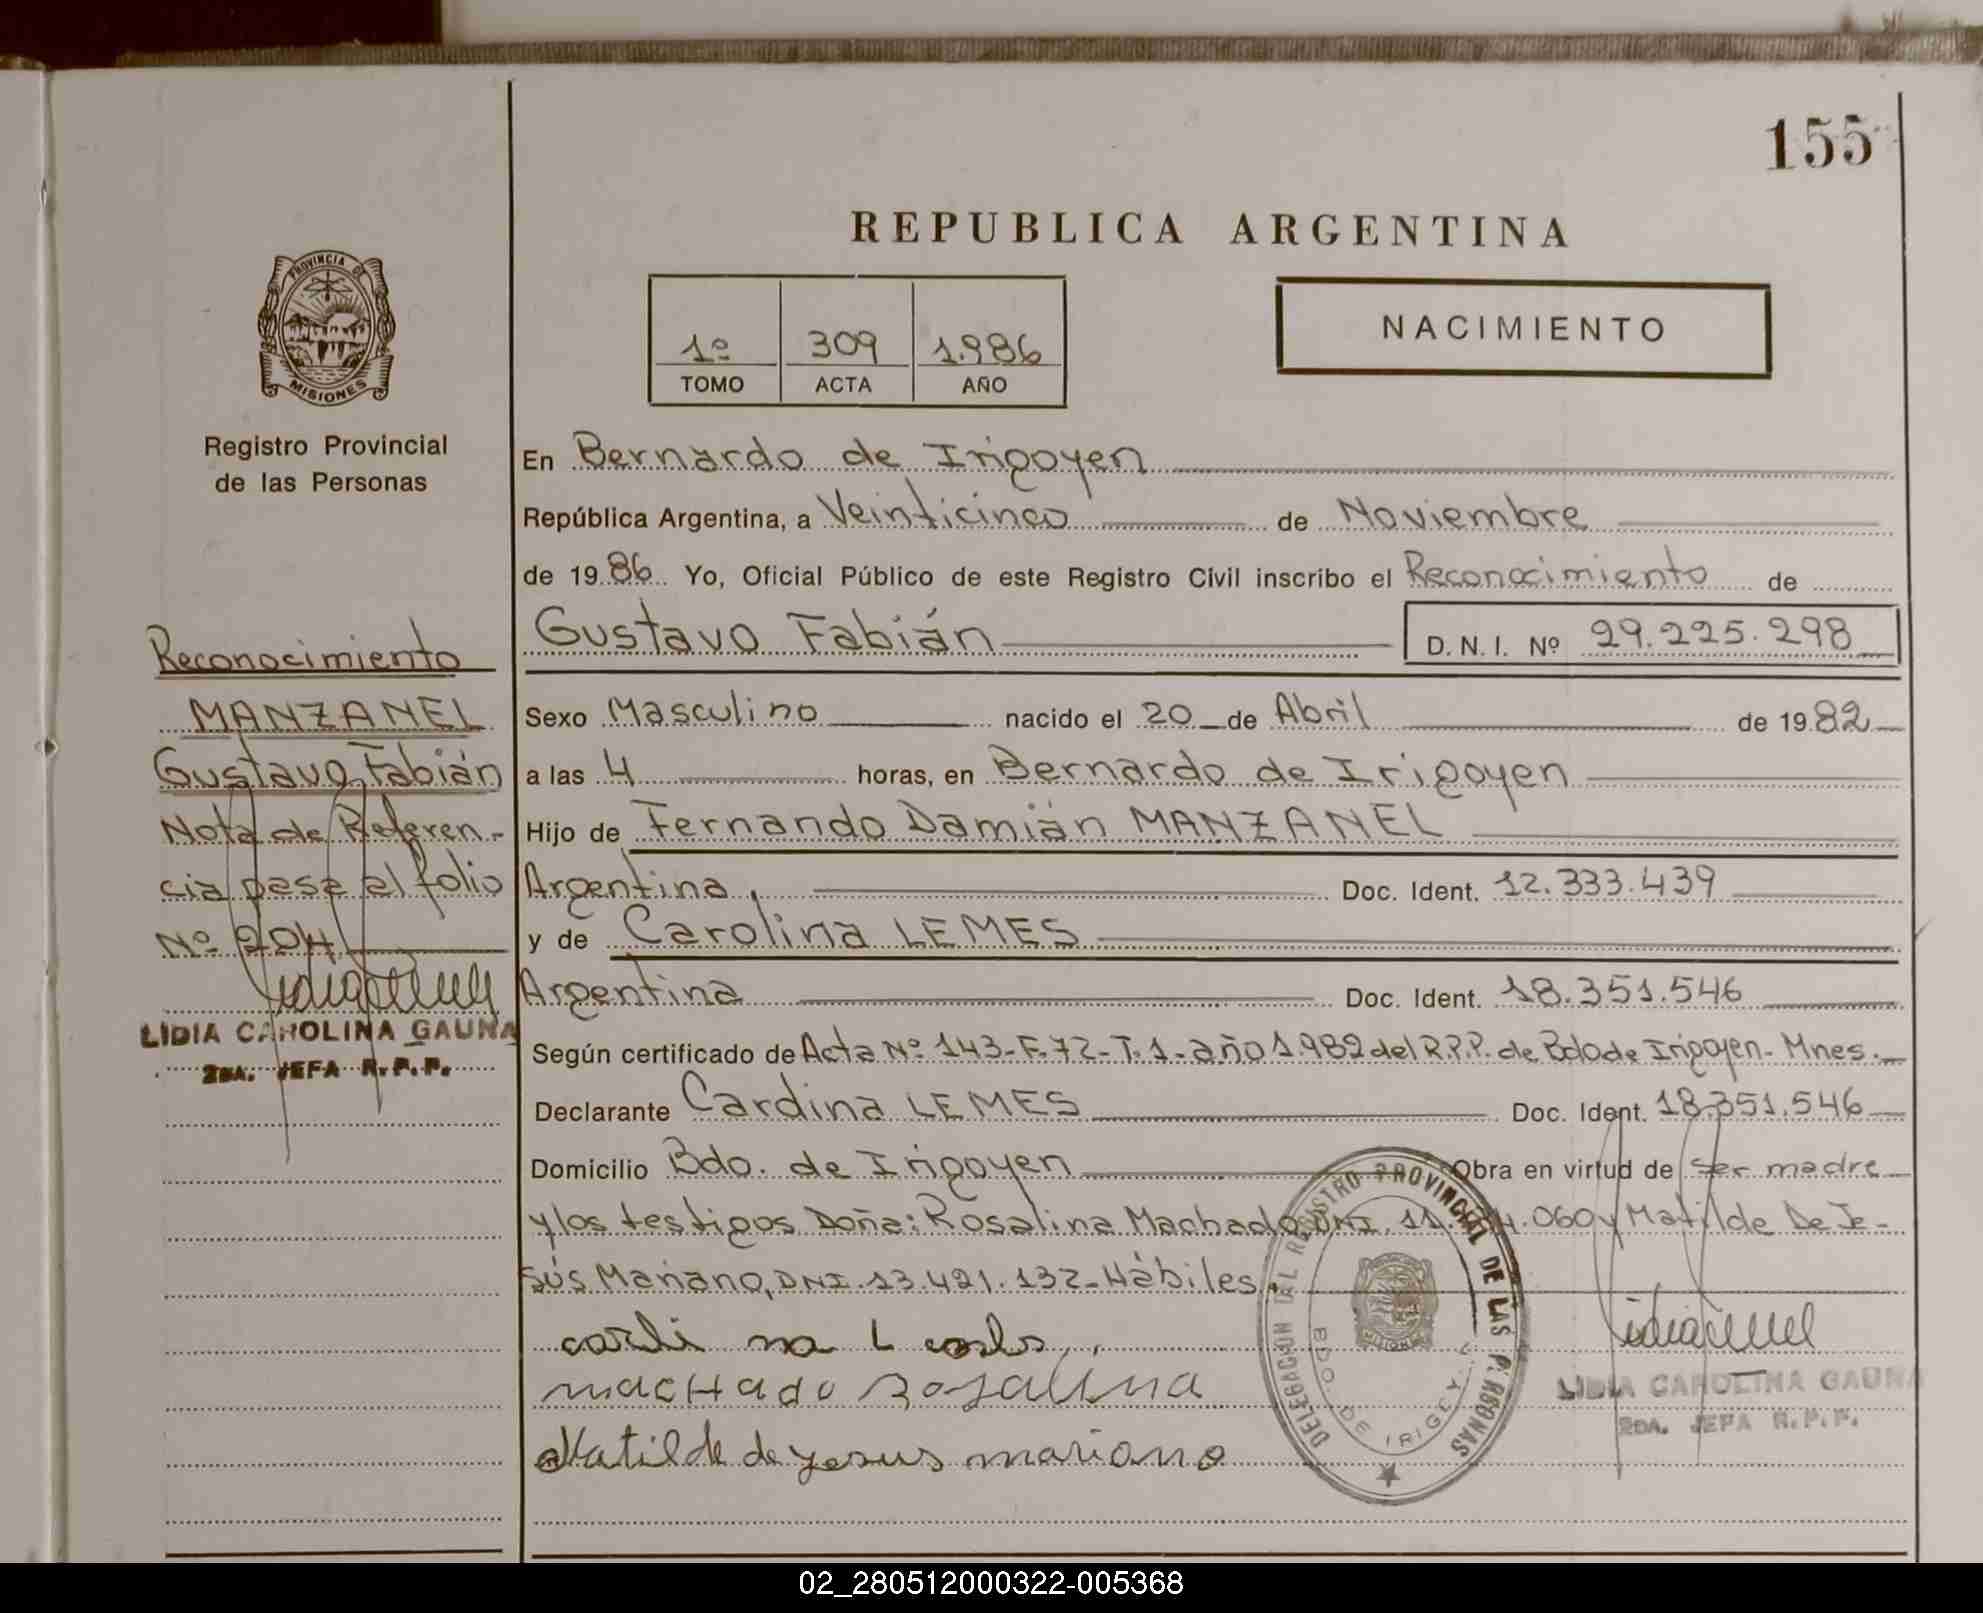 155
REPUBLICA ARGENTINA
PROVINCIA DE
MISIONES
Registro Provincial
de las Personas
1º 309 1.986
TOMO ACTA AÑO
NACIMIENTO
En Bernardo de Irigoyen
República Argentina, a Veinticinco de Noviembre
de 1986 Yo, Oficial Público de este Registro Civil inscribo el Reconocimiento de
Gustavo Fabián D. N. I. Nº 29.225.298
Sexo Masculino nacido el 20 de Abril de 1982
a las 4 horas, en Bernardo de Irigoyen
Hijo de Fernando Damián MANZANEL
Argentina, Doc. Ident. 12.333.439
y de Carolina LEMES
Argentina Doc. Ident. 18.351.546
Según certificado de Acta Nº 143-F.72-T.1-año 1.982 del R.P.P. de Bdo de Irigoyen-Mnes.
Declarante Carolina LEMES Doc. Ident. 18.351.546
Domicilio Bdo. de Irigoyen Obra en virtud de ser madre
y los testigos Doña: Rosalina Machado, DNI. 11. .060 y Matilde De Je-
sús Mariano, DNI. 13.421.132-Hábiles.
machado Rosalina
Matilde de yesus mariano
Reconocimiento
MANZANEL
Gustavo Fabián
Nota de Referen-
cia pasa al folio
Nº 204
LIDIA CAROLINA GAUNA
2DA. JEFA R.P.P.
DELEGACION DEL REGISTRO PROVINCIAL DE LAS PERSONAS
MISIONES
BDO. DE IRIGOYEN
LIDIA CAROLINA GAUNA
2DA. JEFA R.P.P.
02_280512000322-005368